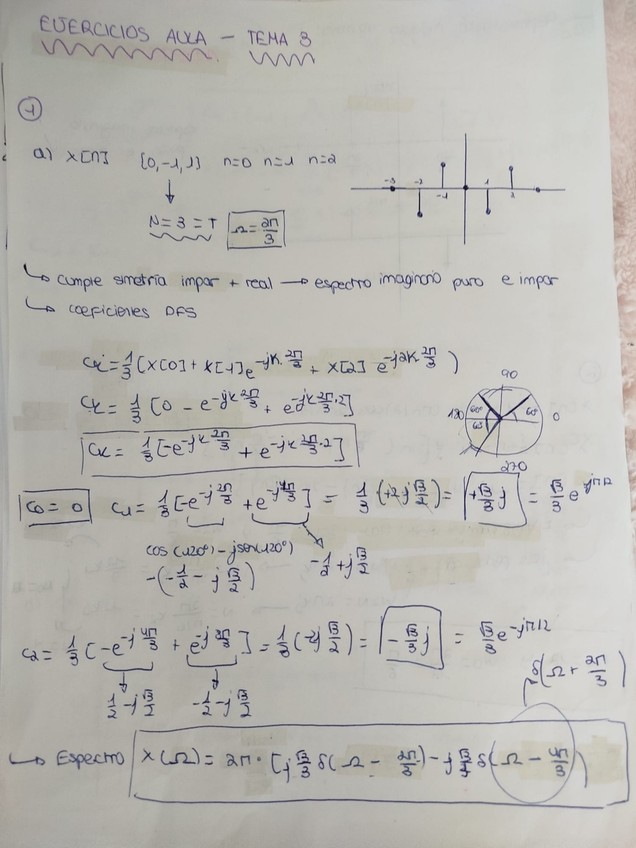 EJERCICIOS AULA – TEMA 3
1
a) x[n] {0,-1,1} n=0 n=1 n=2
N=3=T Ω=2π/3
-3 -2 -1 1 2
↳ cumple simetría impar + real → espectro imaginario puro e impar
↳ coeficientes DFS
Ck=1/3 [x[0]+x[1]e^-jk 2π/3 + x[2] e^-j2k 2π/3 )
Ck= 1/3 [0 - e^-jk 2π/3 + e^-jk 2π/3·2]
Ck= 1/3 [-e^-jk 2π/3 + e^-jk 2π/3·2]
90
180 60º 60º 60º 0
270
C0=0 C1= 1/3 [-e^-j 2π/3 + e^-j 4π/3] = 1/3 (+2j √3/2) = +√3/3 j = √3/3 e^jπ/2
cos(120º) - jsen(120º)
-(-1/2 - j √3/2) -1/2 + j √3/2
C2= 1/3 [-e^-j 4π/3 + e^-j 2π/3] = 1/3 (-2j √3/2) = -√3/3 j = √3/3 e^-jπ/2
1/2 - j √3/2 -1/2 - j √3/2
δ(Ω + 2π/3)
↳ Espectro X(Ω) = 2π · [j √3/3 δ(Ω - 2π/3) - j √3/3 δ(Ω - 4π/3)